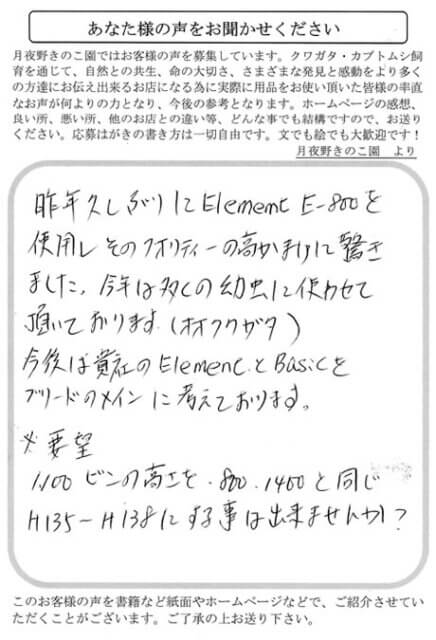 あなた様の声をお聞かせください
月夜野きのこ園ではお客様の声を募集しています。クワガタ・カブトムシ飼
育を通じて、自然との共生、命の大切さ、さまざまな発見と感動をより多く
の方達にお伝え出来るお店になる為に実際に用品をお使い頂いた皆様の率直
なお声が何よりの力となり、今後の参考となります。ホームページの感想、
良い所、悪い所、他のお店との違い等、どんな事でも結構ですので、お送り
ください。応募はがきの書き方は一切自由です。文でも絵でも大歓迎です！
月夜野きのこ園 より
昨年久しぶりにElement E-800を
使用しそのクオリティーの高さに驚き
ました。今年は多くの幼虫に使わせて
頂いております。(オオクワガタ)
今後は貴社のElementとBasicを
ブリードのメインに考えております。
※要望
1100ビンの高さを・800・1400と同じ
H135〜H138にする事は出来ませんか？
このお客様の声を書籍など紙面やホームページなどで、ご紹介させてい
ただくことがございます。ご了承の上お送り下さい。